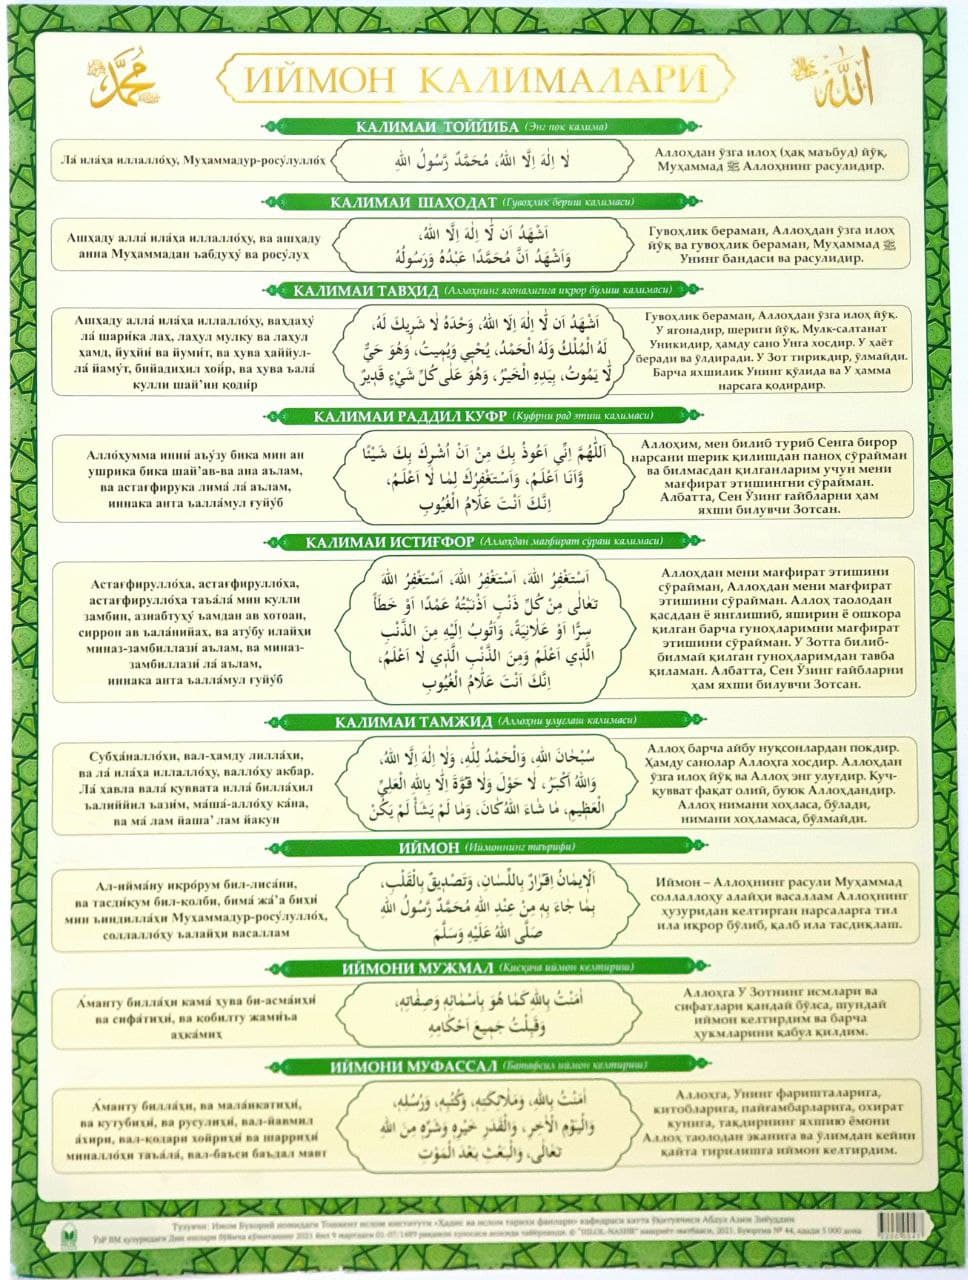 ИЙМОН КАЛИМАЛАРИ
محمد
الله
КАЛИМАИ ТОЙЙИБА (Энг пок калима)
Ла́ ила́ҳа иллалло́ҳу, Муҳаммадур-росу́луллоҳ
لَا اِلٰهَ اِلَّا اللهُ، مُحَمَّدٌ رَّسُولُ اللهِ
Аллоҳдан ўзга илоҳ (ҳақ маъбуд) йўқ,
Муҳаммад ﷺ Аллоҳнинг расулидир.
КАЛИМАИ ШАҲОДАТ (Гувоҳлик бериш калимаси)
Ашҳаду алла́ ила́ҳа иллалло́ҳу, ва ашҳаду
анна Муҳаммадан ъабдуҳу́ ва росу́луҳ
اَشْهَدُ اَن لَّا اِلٰهَ اِلَّا اللهُ،
وَاَشْهَدُ اَنَّ مُحَمَّدًا عَبْدُهُ وَرَسُولُهُ
Гувоҳлик бераман, Аллоҳдан ўзга илоҳ
йўқ ва гувоҳлик бераман, Муҳаммад ﷺ
Унинг бандаси ва расулидир.
КАЛИМАИ ТАВҲИД (Аллоҳнинг ягоналигига иқрор бўлиш калимаси)
Ашҳаду алла́ ила́ҳа иллалло́ҳу, ваҳдаҳу́
ла́ шари́ка лаҳ, лаҳул мулку ва лаҳул
ҳамд, йуҳйи́ ва йуми́т, ва ҳува ҳаййул-
ла́ йаму́т, бийадиҳил хойр, ва ҳува ъала́
кулли шай’ин қоди́р
اَشْهَدُ اَن لَّا اِلٰهَ اِلَّا اللهُ، وَحْدَهُ لَا شَرِيكَ لَهُ،
لَهُ الْمُلْكُ وَلَهُ الْحَمْدُ، يُحْيِي وَيُمِيتُ، وَهُوَ حَيٌّ
لَّا يَمُوتُ، بِيَدِهِ الْخَيْرُ، وَهُوَ عَلٰى كُلِّ شَيْءٍ قَدِيرٌ
Гувоҳлик бераман, Аллоҳдан ўзга илоҳ йўқ.
У ягонадир, шериги йўқ. Мулк-салтанат
Уникидир, ҳамду сано Унга хосдир. У ҳаёт
беради ва ўлдиради. У Зот тирикдир, ўлмайди.
Барча яхшилик Унинг қўлида ва У ҳамма
нарсага қодирдир.
КАЛИМАИ РАДДИЛ КУФР (Куфрни рад этиш калимаси)
Алло́ҳумма инни́ аъу́зу бика мин ан
ушрика бика шай’ав-ва ана аълам,
ва астағфирука лима́ ла́ аълам,
иннака анта ъалла́мул ғуйу́б
اَللّٰهُمَّ اِنِّي اَعُوذُ بِكَ مِنْ اَنْ اُشْرِكَ بِكَ شَيْئًا
وَّاَنَا اَعْلَمُ، وَاَسْتَغْفِرُكَ لِمَا لَا اَعْلَمُ،
اِنَّكَ اَنْتَ عَلَّامُ الْغُيُوبِ
Аллоҳим, мен билиб туриб Сенга бирор
нарсани шерик қилишдан паноҳ сўрайман
ва билмасдан қилганларим учун мени
мағфират этишингни сўрайман.
Албатта, Сен Ўзинг ғайбларни ҳам
яхши билувчи Зотсан.
КАЛИМАИ ИСТИҒФОР (Аллоҳдан мағфират сўраш калимаси)
Астағфирулло́ҳа, астағфирулло́ҳа,
астағфирулло́ҳа таъа́ла́ мин кулли
замбин, азнабтуҳу́ ъамдан ав хотоан,
сиррон ав ъала́нийах, ва ату́бу илайҳи
миназ-замбиллази́ аълам, ва миназ-
замбиллази́ ла́ аълам,
иннака анта ъалла́мул ғуйу́б
اَسْتَغْفِرُ اللهَ، اَسْتَغْفِرُ اللهَ، اَسْتَغْفِرُ اللهَ
تَعَالٰى مِنْ كُلِّ ذَنْبٍ اَذْنَبْتُهُ عَمْدًا اَوْ خَطَأً
سِرًّا اَوْ عَلَانِيَةً، وَاَتُوبُ اِلَيْهِ مِنَ الذَّنْبِ
الَّذِي اَعْلَمُ وَمِنَ الذَّنْبِ الَّذِي لَا اَعْلَمُ،
اِنَّكَ اَنْتَ عَلَّامُ الْغُيُوبِ
Аллоҳдан мени мағфират этишини
сўрайман, Аллоҳдан мени мағфират
этишини сўрайман. Аллоҳ таолодан
қасддан ё янглишиб, яширин ё ошкора
қилган барча гуноҳларимни мағфират
этишини сўрайман. У Зотга билиб-
билмай қилган гуноҳларимдан тавба
қиламан. Албатта, Сен Ўзинг ғайбларни
ҳам яхши билувчи Зотсан.
КАЛИМАИ ТАМЖИД (Аллоҳни улуғлаш калимаси)
Субҳа́наллоҳи, вал-ҳамду лилла́ҳи,
ва ла́ ила́ҳа иллалло́ҳу, валло́ҳу акбар.
Ла́ ҳавла вала́ қуввата илла́ билла́ҳил
ъалиййил ъази́м, ма́ша-алло́ҳу ка́на,
ва ма́ лам йаша’ лам йакун
سُبْحَانَ اللهِ، وَالْحَمْدُ لِلّٰهِ، وَلَا اِلٰهَ اِلَّا اللهُ،
وَاللهُ اَكْبَرُ، لَا حَوْلَ وَلَا قُوَّةَ اِلَّا بِاللهِ الْعَلِيِّ
الْعَظِيمِ، مَا شَاءَ اللهُ كَانَ، وَمَا لَمْ يَشَأْ لَمْ يَكُنْ
Аллоҳ барча айбу нуқсонлардан покдир.
Ҳамду санолар Аллоҳга хосдир. Аллоҳдан
ўзга илоҳ йўқ ва Аллоҳ энг улуғдир. Куч-
қувват фақат олий, буюк Аллоҳдандир.
Аллоҳ нимани хоҳласа, бўлади,
нимани хоҳламаса, бўлмайди.
ИЙМОН (Иймоннинг таърифи)
Ал-ийма́ну иқро́рум бил-лиса́ни,
ва тасди́қум бил-қолби, бима́ жа́’а биҳи́
мин ъиндилла́ҳи Муҳаммадур-росу́лулло́ҳ,
соллалло́ҳу ъалайҳи васаллам
اَلْاِيمَانُ اِقْرَارٌ بِاللِّسَانِ، وَتَصْدِيقٌ بِالْقَلْبِ،
بِمَا جَاءَ بِهِ مِنْ عِنْدِ اللهِ مُحَمَّدٌ رَّسُولُ اللهِ
صَلَّى اللهُ عَلَيْهِ وَسَلَّمَ
Иймон – Аллоҳнинг расули Муҳаммад
соллаллоҳу алайҳи васаллам Аллоҳнинг
ҳузуридан келтирган нарсаларга тил
ила иқрор бўлиб, қалб ила тасдиқлаш.
ИЙМОНИ МУЖМАЛ (Қисқача иймон келтириш)
А́манту билла́ҳи кама́ ҳува би-асма́иҳи́
ва сифа́тиҳи́, ва қобилту жами́ъа
аҳка́миҳ
اٰمَنْتُ بِاللهِ كَمَا هُوَ بِاَسْمَائِهِ وَصِفَاتِهِ،
وَقَبِلْتُ جَمِيعَ اَحْكَامِهِ
Аллоҳга У Зотнинг исмлари ва
сифатлари қандай бўлса, шундай
иймон келтирдим ва барча
ҳукмларини қабул қилдим.
ИЙМОНИ МУФАССАЛ (Батафсил иймон келтириш)
А́манту билла́ҳи, ва мала́икатиҳи́,
ва кутубиҳи́, ва русулиҳи́, вал-йавмил
а́хири, вал-қодари хойриҳи́ ва шарриҳи́
миналло́ҳи таъа́ла́, вал-баъси баъдал мавт
اٰمَنْتُ بِاللهِ، وَمَلَائِكَتِهِ، وَكُتُبِهِ، وَرُسُلِهِ،
وَالْيَوْمِ الْاٰخِرِ، وَالْقَدَرِ خَيْرِهِ وَشَرِّهِ مِنَ اللهِ
تَعَالٰى، وَالْبَعْثِ بَعْدَ الْمَوْتِ
Аллоҳга, Унинг фаришталарига,
китобларига, пайғамбарларига, охират
кунига, тақдирнинг яхшию ёмони
Аллоҳ таолодан эканига ва ўлимдан кейин
қайта тирилишга иймон келтирдим.
Тузувчи: Имом Бухорий номидаги Тошкент ислом институти «Ҳадис ва ислом тарихи фанлари» кафедраси катта ўқитувчиси Абдул Азим Зиёуддин
ЎзР ВМ ҳузуридаги Дин ишлари бўйича қўмитанинг 2021 йил 9 мартдаги 01-07/1697 рақамли хулосаси асосида тайёрланди. © "HILOL-NASHR" нашриёт-матбааси, 2021. Буюртма № 44, адади 5 000 дона